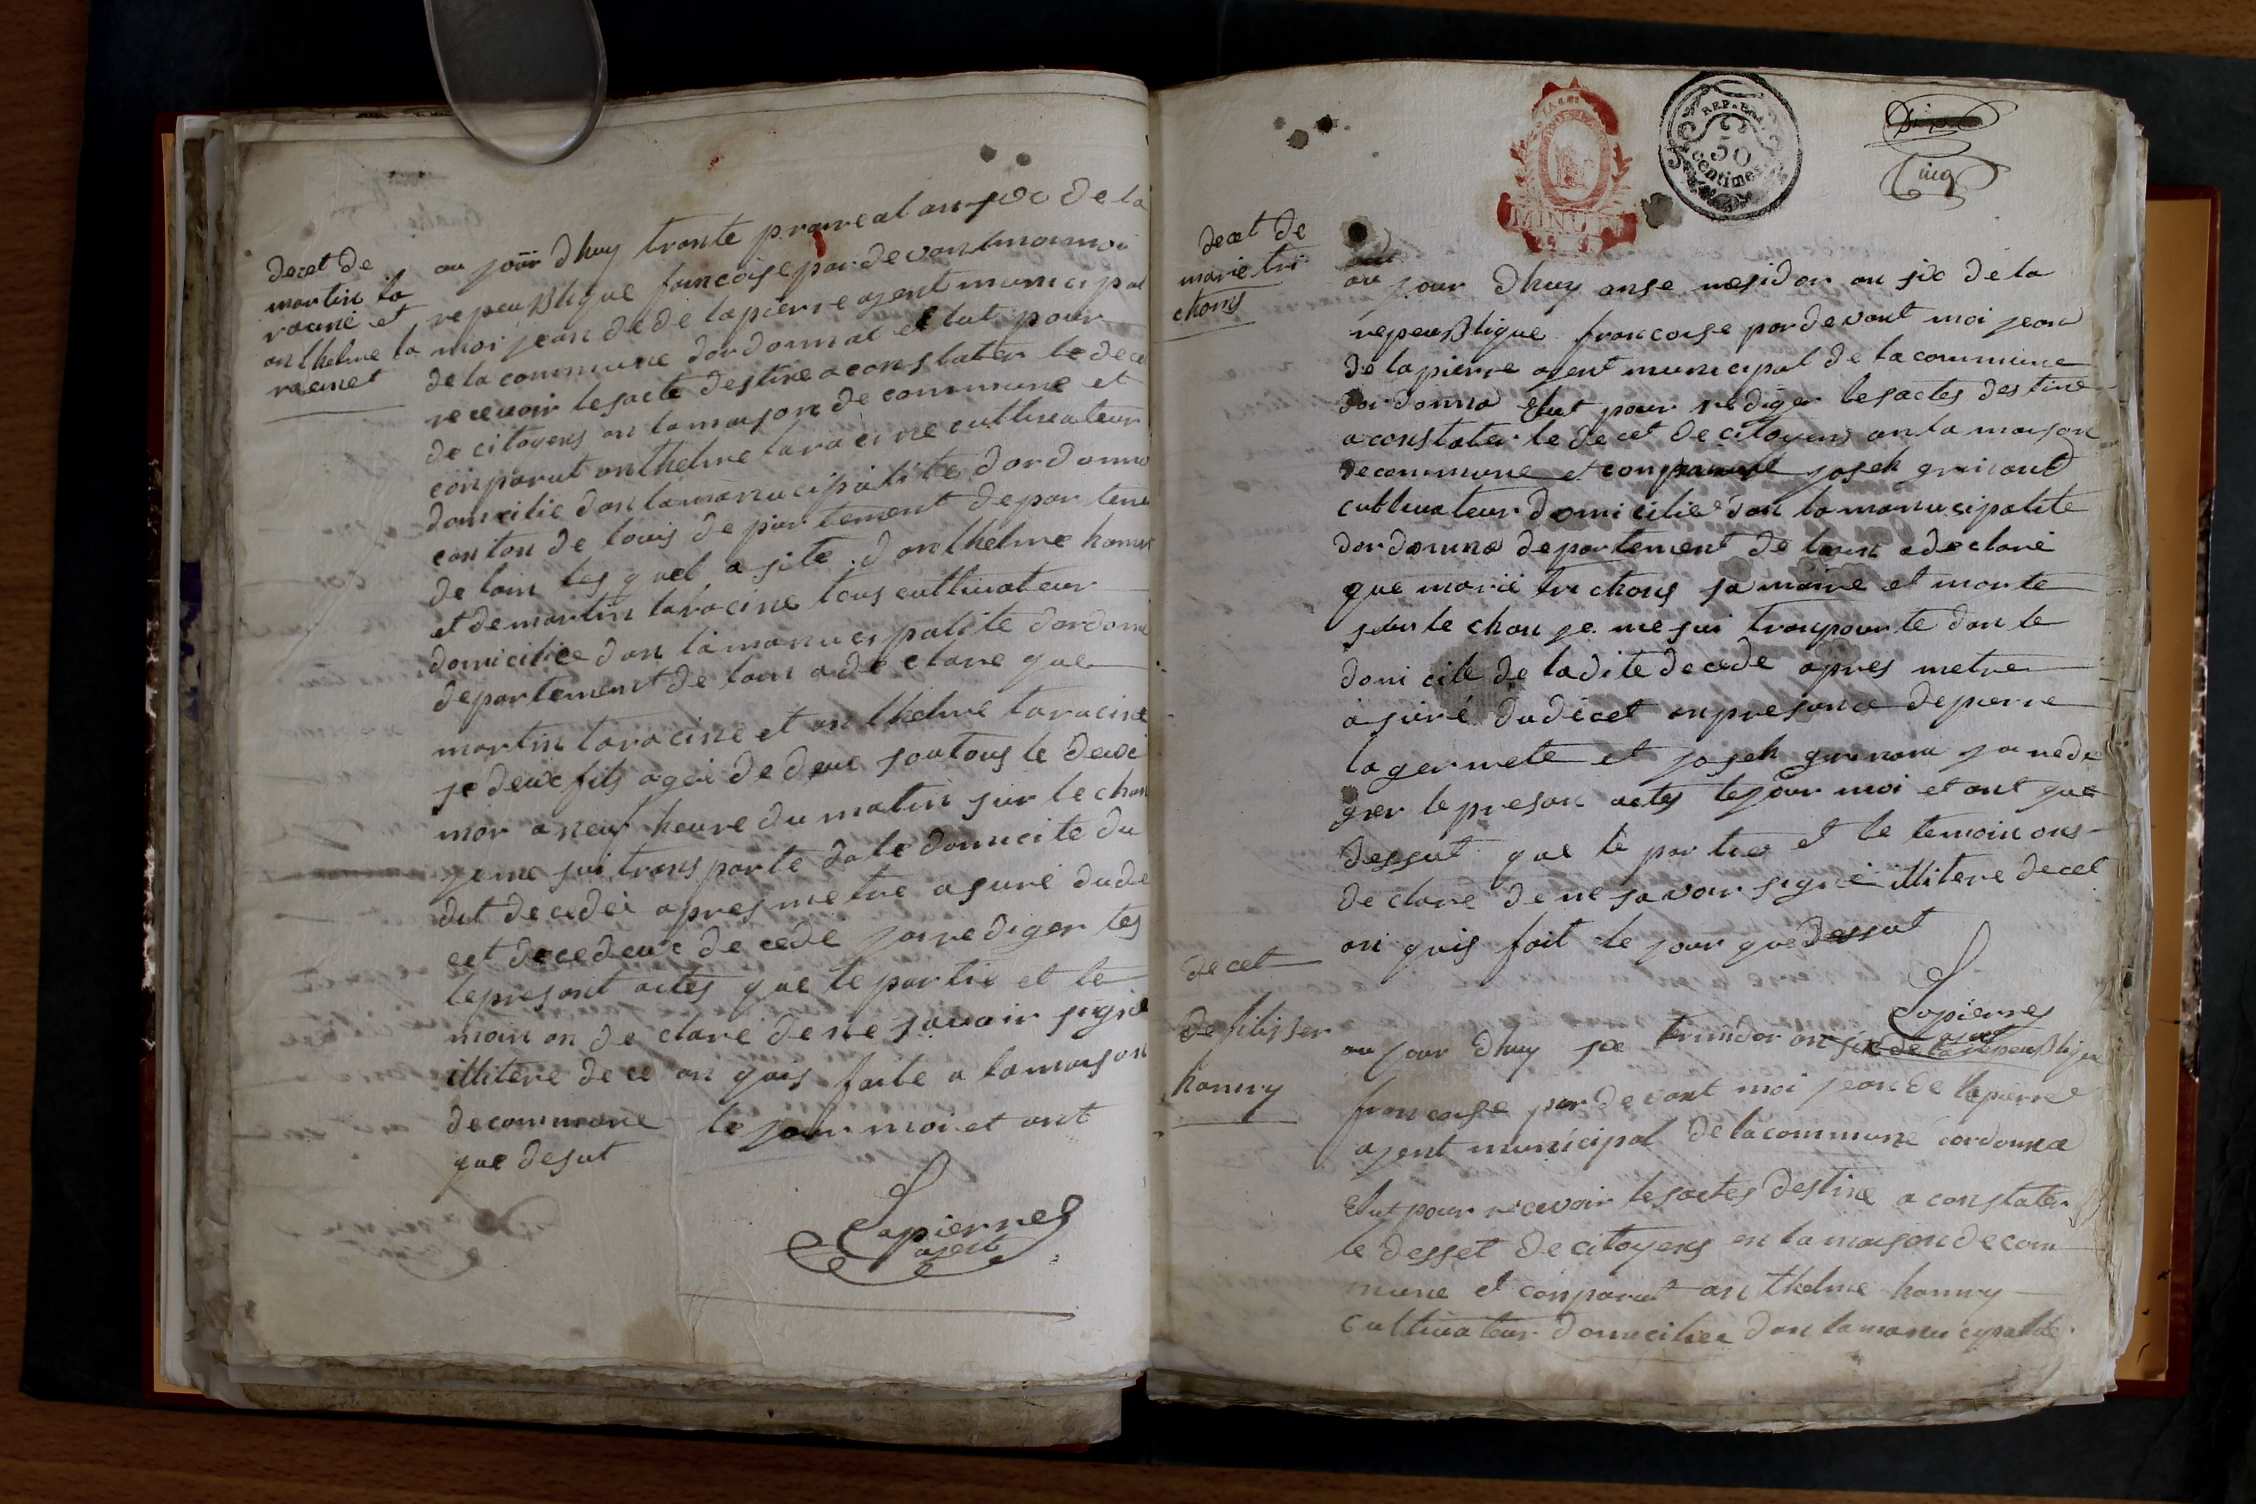 decet de
martin la
racine et
anthelme la
racinet
au jour dhuy trante prareal an six de la
repeublique francoise par de vant moi
moi jean de de lapierre agent municipal
de la commune dordonnat elut pour
recevoir lesacte destine a constater le dece
de citoyens an la maison de commune et
conparut anthelme laracine cultivateur
domicilie dan lamanucipalite dordonna
canton de de partement
de lain les quel a site danthelme
et de martin laracine tous cultivateur
domicilice dan lamanucipalite dordonna
departement de lain a de clare que
martin laracine et anthelme laracine
se deux fils agei de deux tous le deux
mor a neuf heure du matin sur le chan
je me sui trans porte da le domicile du
dit decedei apres metre asure du de
cet decedeuc decede jai rediger les
lepresant actes que le partie et le
moin on de clare de ne savoir signe
illitere de ce an quis faite a la maison
de commune le jour moi et ant
que desut
Lapierre
agent
MINUTE
REP. FRA.
50
centimes
cinq
decet de
marie tri
chons
au jour dhuy onse mesidor an six de la
repeublique francoise par de vant moi jean
de lapierre agent municipal de la commune
dordonna elut pour rediger lesactes destine
a constater le decet de citoyens an la maison
de commune et conparut joseh
cultivateur domicilie dan la manucipalite
dordonna departement de lain a declare
que marie trichons sa maire et morte
sur le chan je me sui tranpourte dan le
domicile de ladite decede apres metre
asuré du decet an presance de pierre
la germete et joseh jai redi
ger le presan actes lejour moi et ant que
dessut que le partie et le temoin ons
de clare de ne savoir signe illitere decet
an quis fait le jour que dessut
Lapierre
agent
decet
de filisser
hanry
au jour dhuy six termidor an six de la repeublique
francoise par de vant moi jean de lapierre
agent municipal de la commune dordonna
elut pour recevoir lesactes destine a constater
le desset de citoyens en la maison de com
mune et conparut anthelme hanry
cultivateur domicilice dan la manucypalite